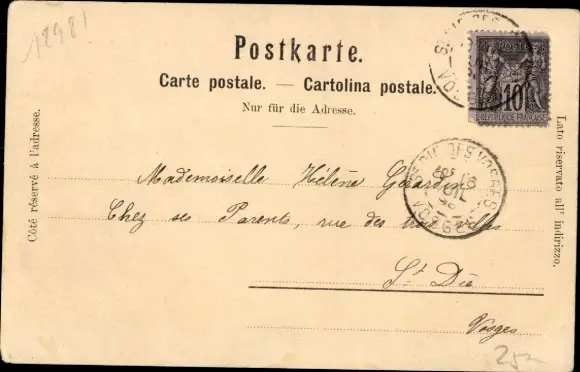 18981
Postkarte.
Carte postale. — Cartolina postale.
Nur für die Adresse.
POSTES
10
REPUBLIQUE FRANÇAISE
Côté réservé à l'adresse.
Lato riservato all' indirizzo.
DES VOSGES
VOSGES
Mademoiselle Hélène Gérardin
Chez ses Parents, rue des
St Dié
Vosges
25-